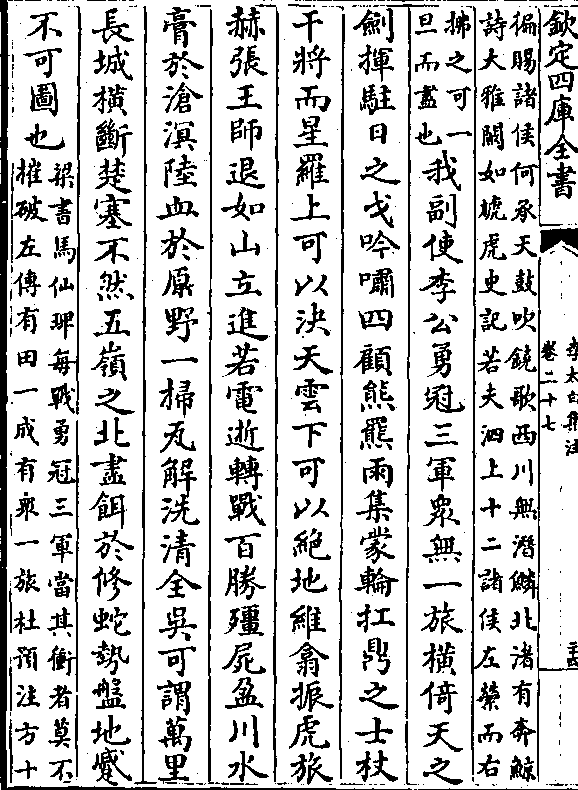 欽定四庫全書
李太白集注
卷二十七
徧賜諸侯何承天鼓吹鐃歌西川無潛鱗北渚有奔鯨
詩大雅闞如虓虎史記若夫泗上十二諸侯左縈而右
拂之可一
旦而盡也
我副使李公勇冠三軍衆無一旅橫倚天之
劍揮駐日之戈吟嘯四顧熊羆雨集蒙輪扛鼎之士杖
干將而星羅上可以決天雲下可以絶地維翕振虎旅
赫張王師退如山立進若電逝轉戰百勝殭屍盈川水
膏於滄溟陸血於原野一掃瓦解洗清全吳可謂萬里
長城橫斷楚塞不然五嶺之北盡餌於修蛇勢盤地蹙
不可圖也
梁書馬仙琕每戰勇冠三軍當其衝者莫不
摧破左傳有田一成有衆一旅杜預注方十